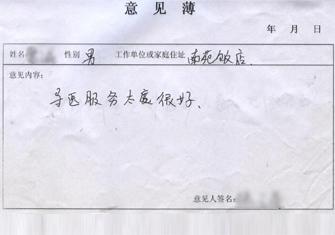 意见薄
年 月 日
姓名 性别 男 工作单位或家庭住址 南苑饭店.
意见内容:
导医服务太度很好、
意见人签名: